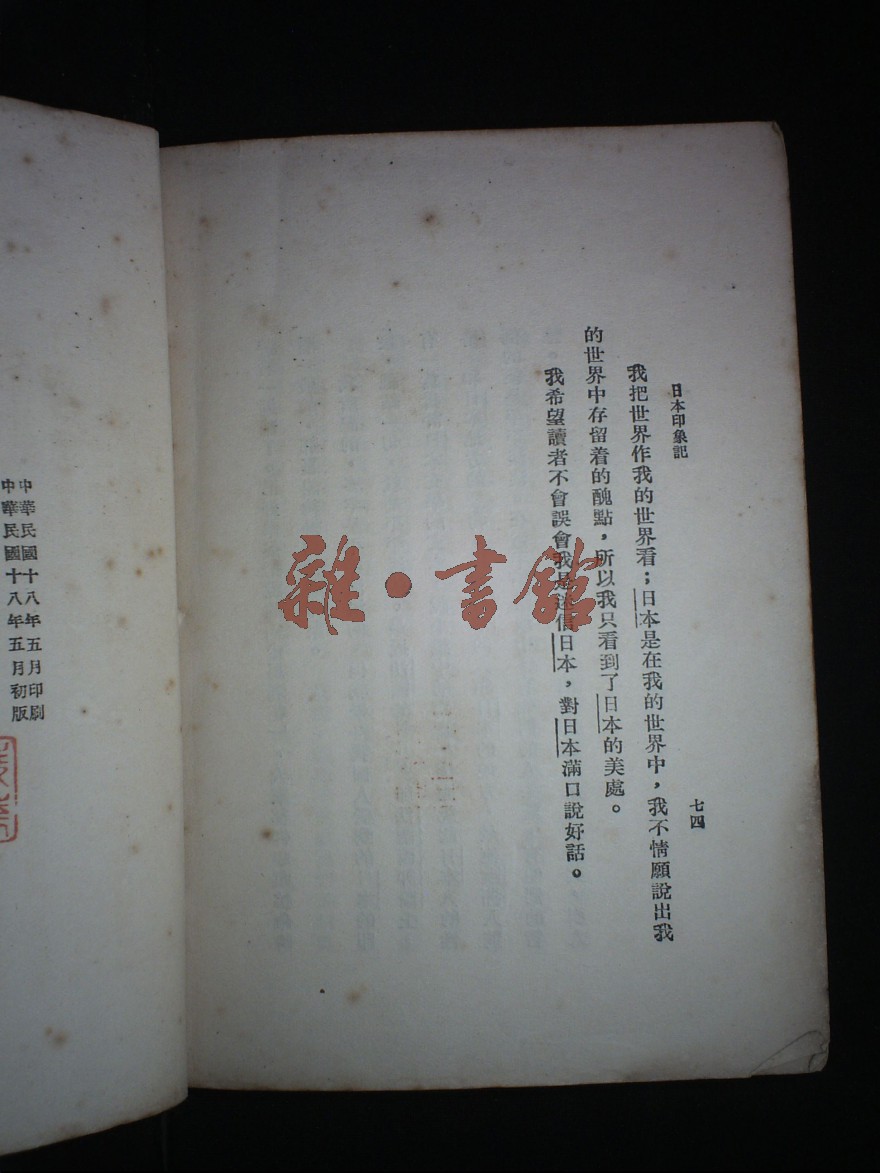 日本印象記
七四
我把世界作我的世界看；日本是在我的世界中，我不情願說出我
的世界中存留着的醜點，所以我只看到了日本的美處。
我希望讀者不會誤會我是迷信日本，對日本滿口說好話。
雜·書館
中華民國十八年五月印刷
中華民國十八年五月初版